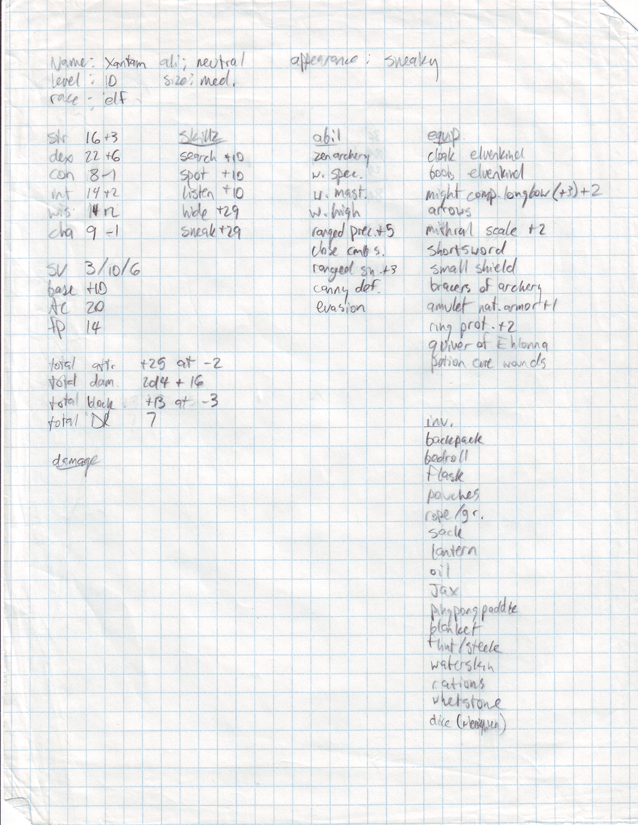 Name: Xantam ali; neutral appearance: sneaky
level: 10 size: med.
race - elf
str 16 +3
dex 22 +6
con 8 -1
int 14 +2
wis 14 +2
cha 9 -1
sv 3/10/6
base +10
AC 20
hp 14
total attr. +25 at -2
total dam. 2d4 + 16
total block +13 at -3
total DR 7
damage
skillz
search +10
spot +10
listen +10
hide +29
sneak +29
abil
zen archery
w. spec.
w. mast.
w. high
ranged prec. +5
close cmbs.
ranged sn. +3
canny def.
evasion
equp
cloak elvenkind
boots elvenkind
might comp. longbow (+3) +2
arrows
mithral scale +2
shortsword
small shield
bracers of archery
amulet nat. armor +1
ring prot. +2
quiver of Ehlonna
potion cure wounds
inv.
backpack
bedroll
flask
pouches
rope/gr.
sack
lantern
oil
Jax
pingpong paddle
blanket
flint/steele
waterskin
rations
whetstone
dice